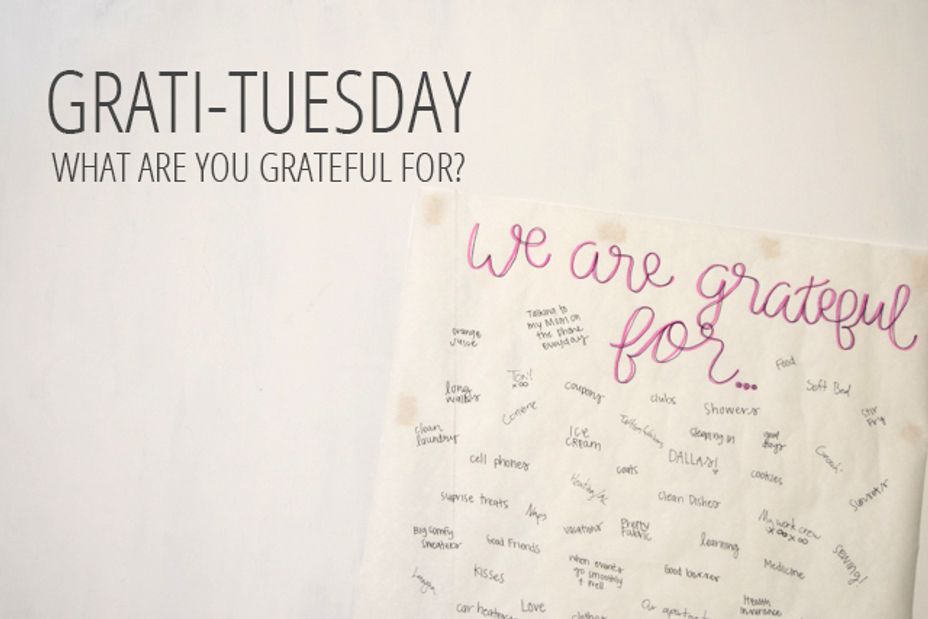 GRATI-TUESDAY
WHAT ARE YOU GRATEFUL FOR?
we are grateful
for...
Talking to
my Mom on
the phone
everyday
orange
juice
Food
Soft Bed
Stir
Fry
Tori!
xoo
long
walks
coupons
clubs
Showers
clean
laundry
ICE
CREAM
sleeping in
good
DALLAS!
cell phones
coats
cookies
Summer
suprise treats
Naps
clean Dishes
My work crew
xooxoo
Big comfy
sweaters
Good Friends
vacations
Pretty
Fabric
learning
sewing!
kisses
when events
go smoothly
+ well
Good
Medicine
car heater
Love
clothes
Our apartment
Health
insurance